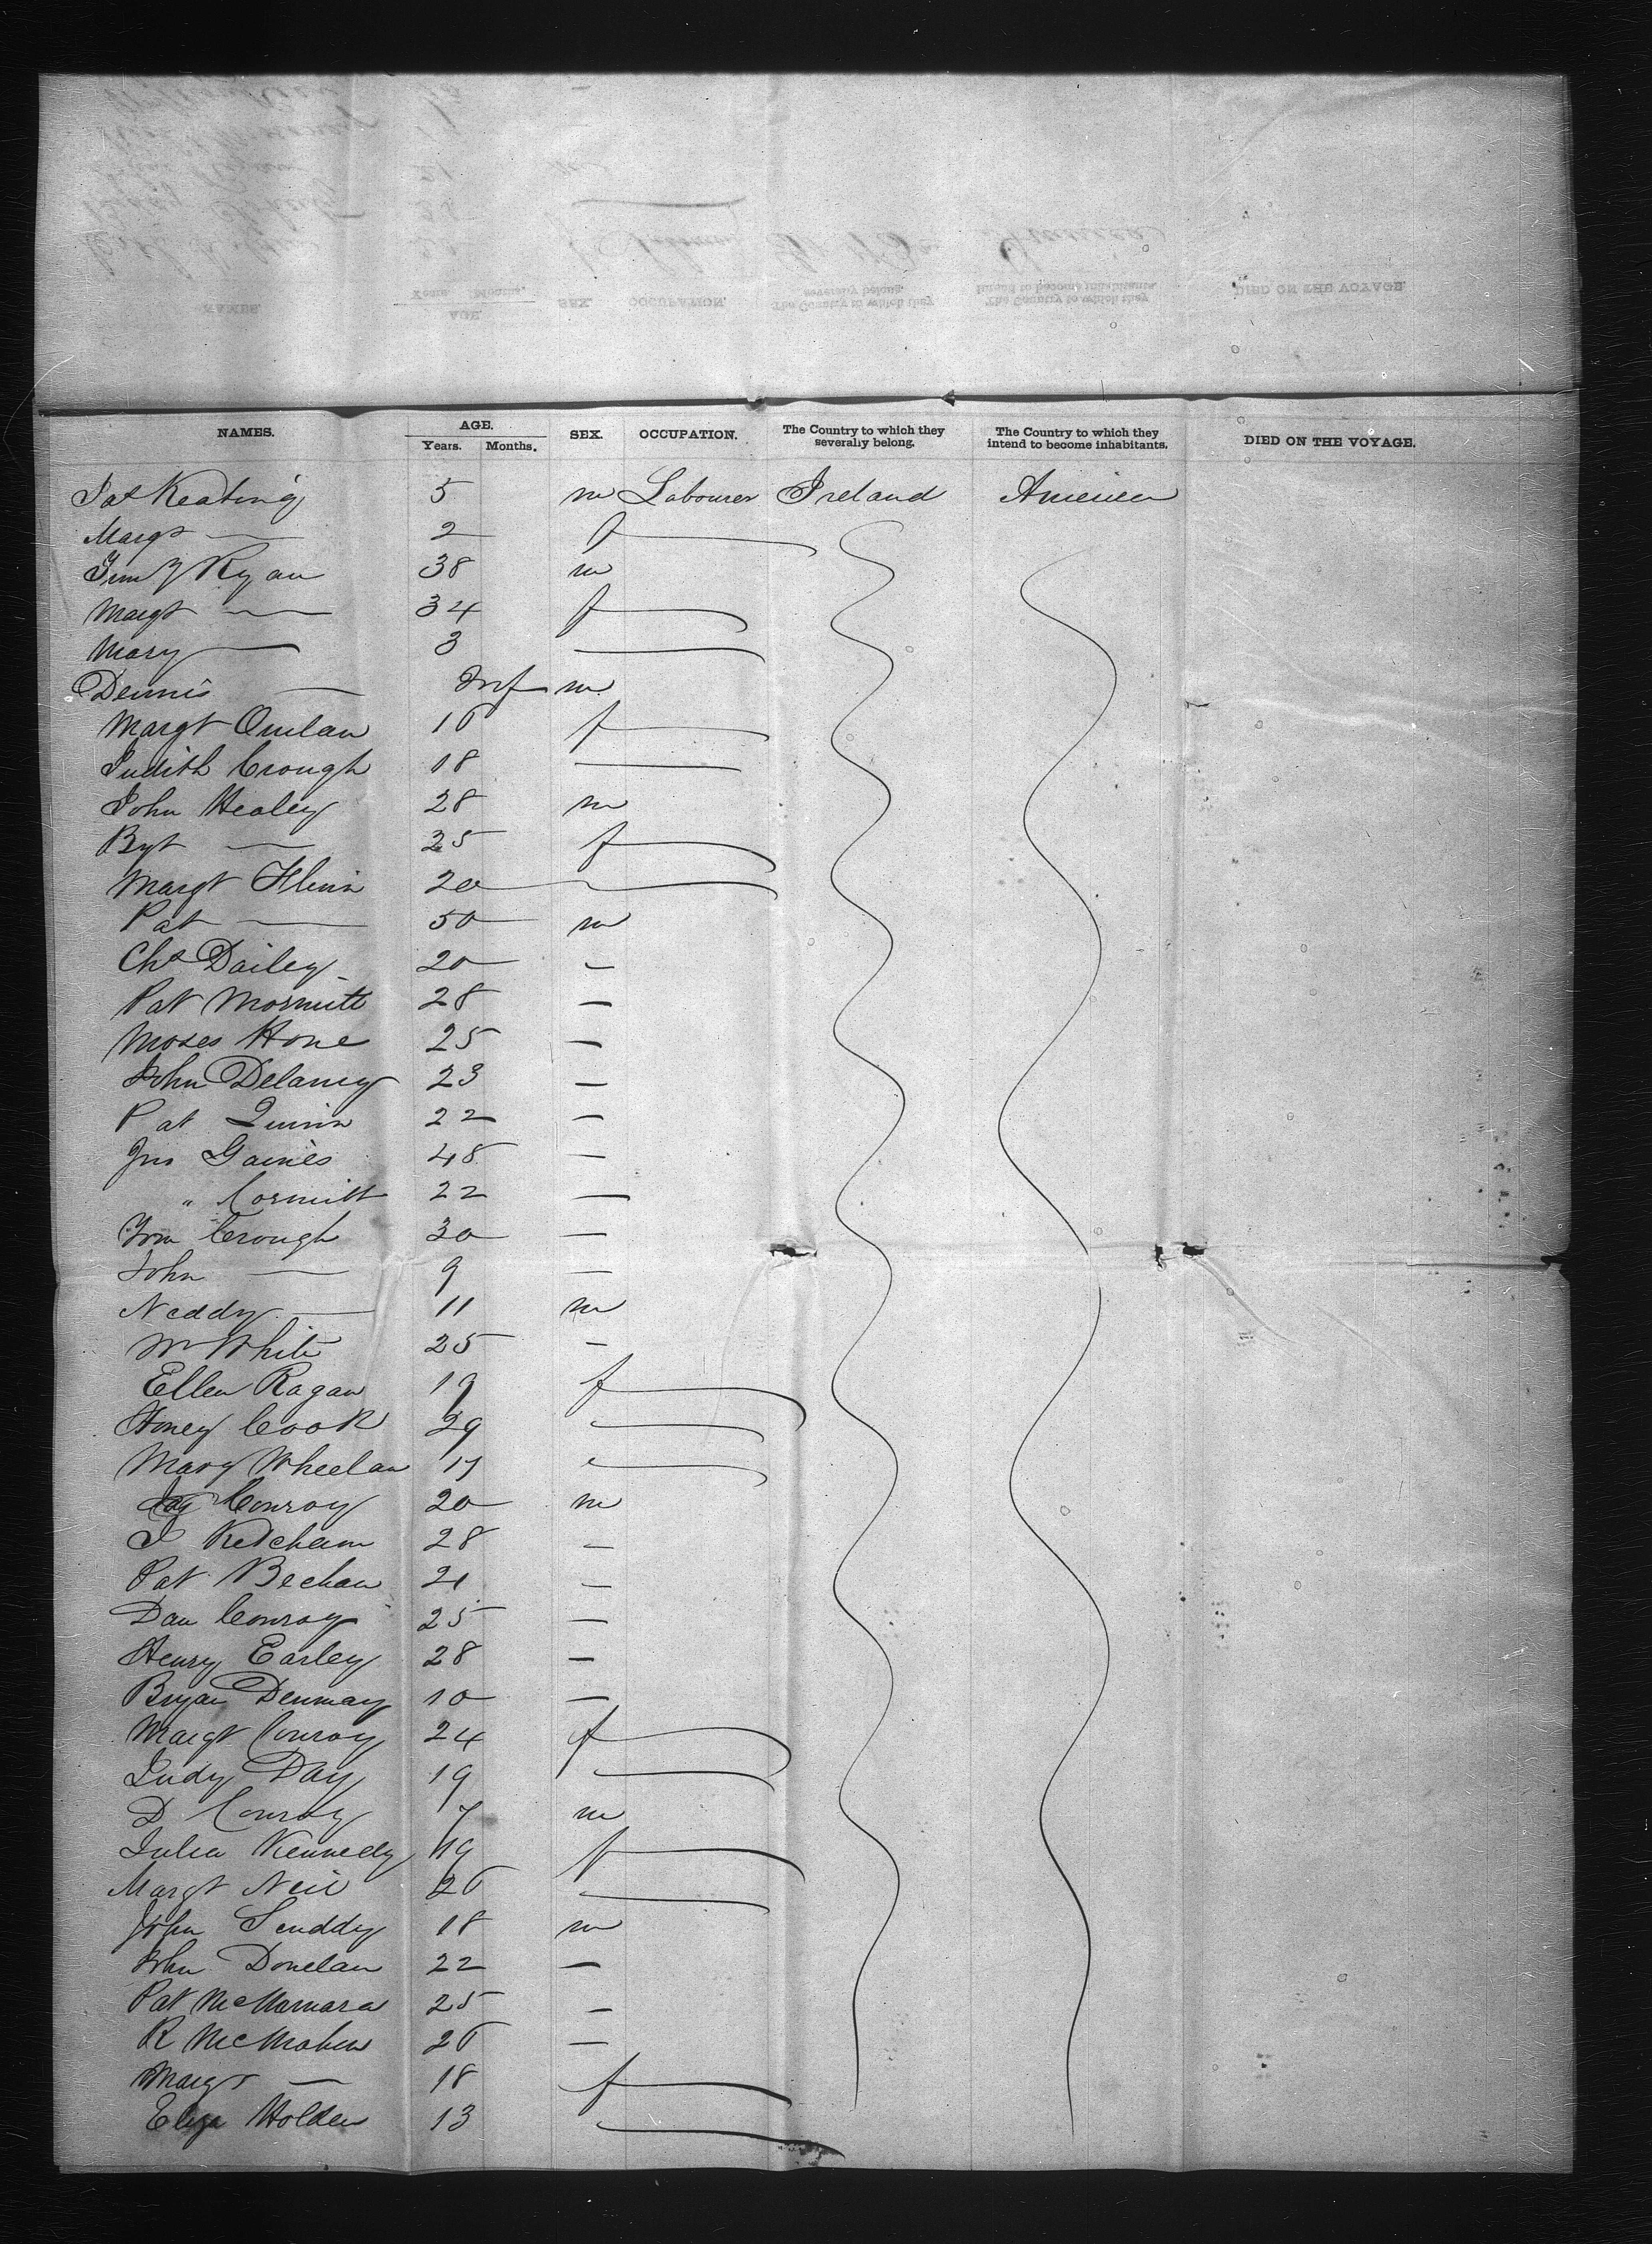 NAMES. AGE. Years. Months. SEX. OCCUPATION. The Country to which they severally belong. The Country to which they intend to become inhabitants. DIED ON THE VOYAGE.
Pat Keating 5 m Labourer Ireland America
Margt — 2 f
Timy Ryan 38 m
Margt — 34 f
Mary — 3 —
Dennis — Inf m
Margt Quilan 16 f
Judith Crough 18 —
John Healey 28 m
Byt — 25 f
Margt Flinn 20 —
Pat — 50 m
Chs Dailey 20 —
Pat 28 —
Moses Hone 25 —
John Delaney 23 —
Pat Quinn 22 —
Jno Gaines 48 —
" Cormitt 22 —
Tom Crough 30 —
John — 9 —
Neddy — 11 m
Wm White 25 —
Ellen Ragan 19 f
Honey Cook 29 —
Mary Wheelan 17 —
Conroy 20 m
J Ketcham 28 —
Pat Bechan 21 —
Dan Conroy 25 —
Henry Earley 28 —
Bryan Denmay 10 —
Margt Conroy 24 f
Judy Day 19 —
D Conroy 7 m
Julia Kennedy 19 f
Margt Neil 26 —
John Scuddy 18 m
John Donelan 22 —
Pat McNamara 25 —
R McMahon 26 —
Margt — 18 f
Eliza Holden 13 —